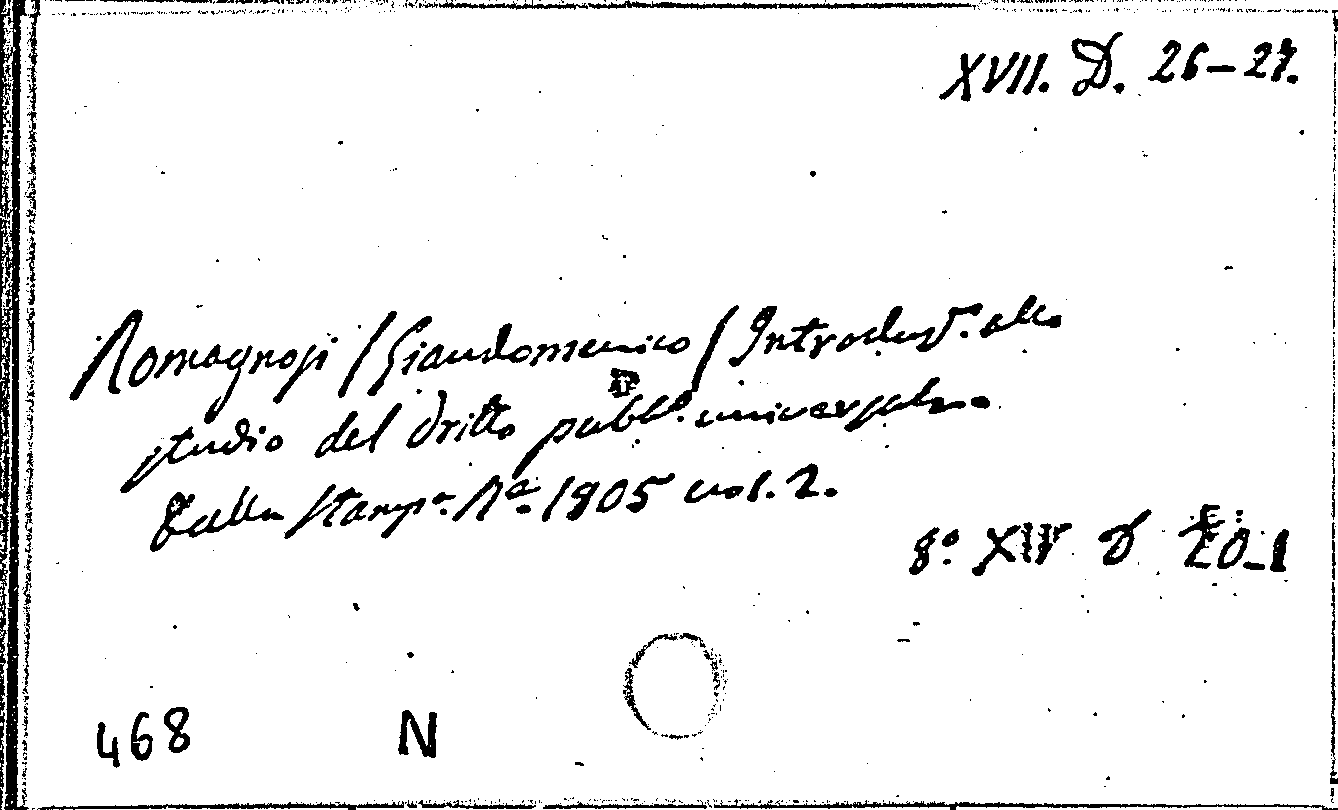 XVII. D. 26-27.
Romagnosi (Giandomenico) Introduz. allo
studio del dritto pubb.o universale
Dalla Stamp.a R.a 1805 vol. 2.
8.o XIV D
468 N